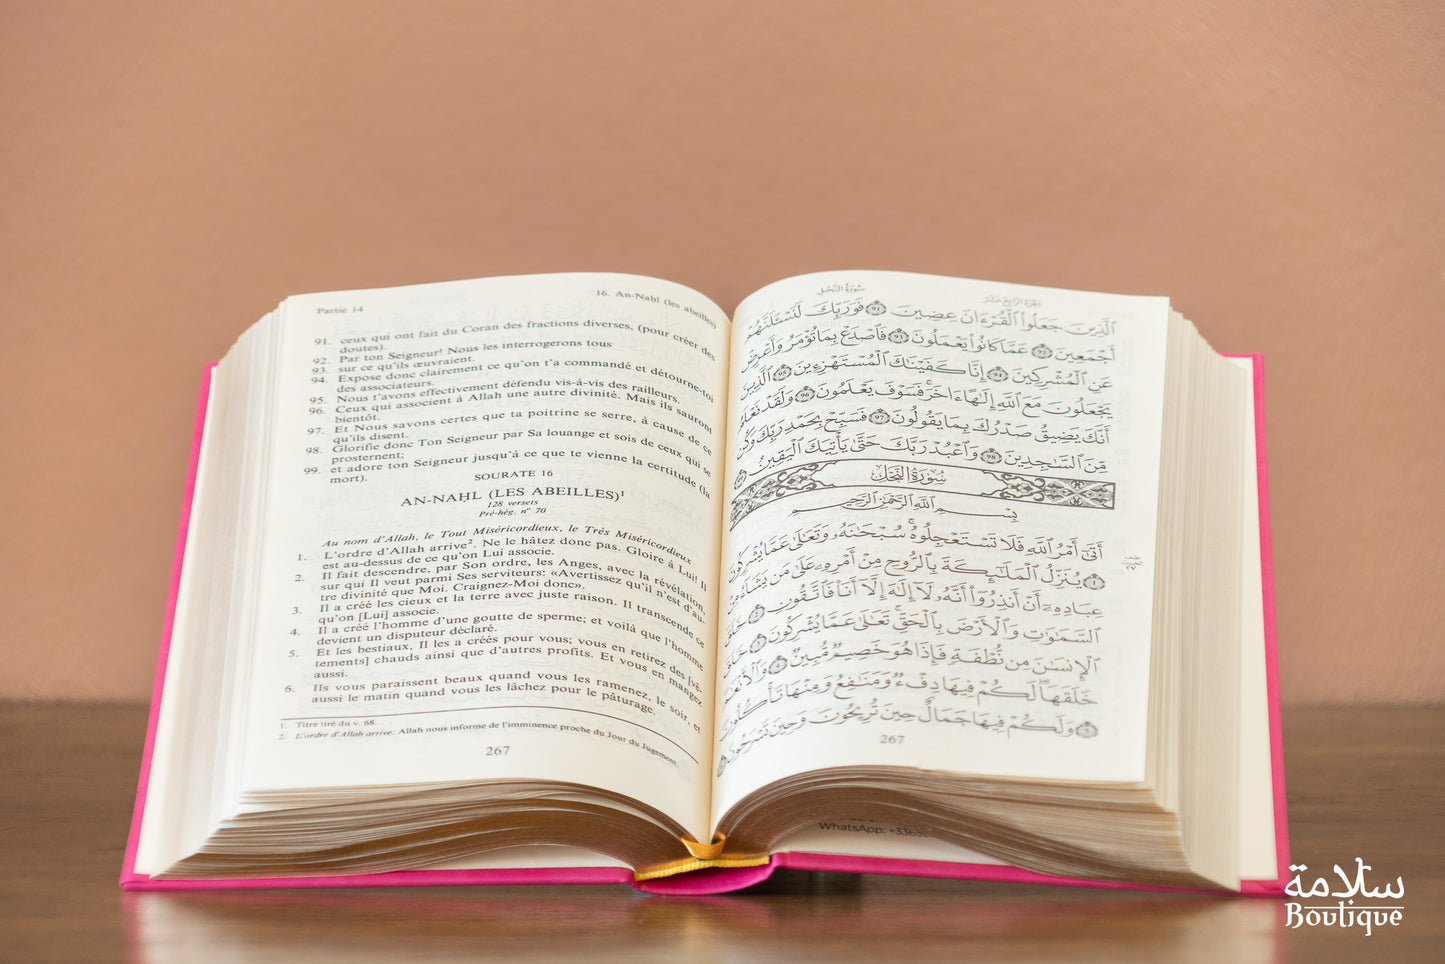 Partie 14
16. An-Naḥl (les abeilles)
91. ceux qui ont fait du Coran des fractions diverses, (pour créer des
doutes).
92. Par ton Seigneur! Nous les interrogerons tous
93. sur ce qu'ils œuvraient.
94. Expose donc clairement ce qu'on t'a commandé et détourne-toi
des associateurs.
95. Nous t'avons effectivement défendu vis-à-vis des railleurs.
96. Ceux qui associent à Allah une autre divinité. Mais ils sauront
bientôt.
97. Et Nous savons certes que ta poitrine se serre, à cause de ce
qu'ils disent.
98. Glorifie donc Ton Seigneur par Sa louange et sois de ceux qui se
prosternent;
99. et adore ton Seigneur jusqu'à ce que te vienne la certitude (la
mort).
SOURATE 16
AN-NAḤL (LES ABEILLES)¹
128 versets
Pré-hég. n° 70
Au nom d'Allah, le Tout Miséricordieux, le Très Miséricordieux
1. L'ordre d'Allah arrive². Ne le hâtez donc pas. Gloire à Lui! Il
est au-dessus de ce qu'on Lui associe.
2. Il fait descendre, par Son ordre, les Anges, avec la révélation,
sur qui Il veut parmi Ses serviteurs: «Avertissez qu'il n'est d'au-
tre divinité que Moi. Craignez-Moi donc».
3. Il a créé les cieux et la terre avec juste raison. Il transcende ce
qu'on [Lui] associe.
4. Il a créé l'homme d'une goutte de sperme; et voilà que l'homme
devient un disputeur déclaré.
5. Et les bestiaux, Il les a créés pour vous; vous en retirez des [vê-
tements] chauds ainsi que d'autres profits. Et vous en mangez
aussi.
6. Ils vous paraissent beaux quand vous les ramenez, le soir, et
aussi le matin quand vous les lâchez pour le pâturage.
1. Titre tiré du v. 68.
2. L'ordre d'Allah arrive: Allah nous informe de l'imminence proche du Jour du Jugement.
267
سُورَةُ النَّحْلِ
الجُزءُ الرَّابِعَ عَشَرَ
الَّذِينَ جَعَلُوا الْقُرْءَانَ عِضِينَ ٩١ فَوَرَبِّكَ لَنَسْـَٔلَنَّهُمْ
أَجْمَعِينَ ٩٢ عَمَّا كَانُوا يَعْمَلُونَ ٩٣ فَاصْدَعْ بِمَا تُؤْمَرُ وَأَعْرِضْ
عَنِ الْمُشْرِكِينَ ٩٤ إِنَّا كَفَيْنَاكَ الْمُسْتَهْزِءِينَ ٩٥ الَّذِينَ
يَجْعَلُونَ مَعَ اللَّهِ إِلَٰهًا ءَاخَرَ فَسَوْفَ يَعْلَمُونَ ٩٦ وَلَقَدْ نَعْلَمُ
أَنَّكَ يَضِيقُ صَدْرُكَ بِمَا يَقُولُونَ ٩٧ فَسَبِّحْ بِحَمْدِ رَبِّكَ وَكُن
مِّنَ السَّاجِدِينَ ٩٨ وَاعْبُدْ رَبَّكَ حَتَّىٰ يَأْتِيَكَ الْيَقِينُ ٩٩
سُورَةُ النَّحْلِ
بِسْمِ اللَّهِ الرَّحْمَٰنِ الرَّحِيمِ
أَتَىٰ أَمْرُ اللَّهِ فَلَا تَسْتَعْجِلُوهُ سُبْحَانَهُ وَتَعَالَىٰ عَمَّا يُشْرِكُونَ
١ يُنَزِّلُ الْمَلَائِكَةَ بِالرُّوحِ مِنْ أَمْرِهِ عَلَىٰ مَن يَشَاءُ مِنْ
عِبَادِهِ أَنْ أَنذِرُوا أَنَّهُ لَا إِلَٰهَ إِلَّا أَنَا فَاتَّقُونِ ٢ خَلَقَ
السَّمَاوَاتِ وَالْأَرْضَ بِالْحَقِّ تَعَالَىٰ عَمَّا يُشْرِكُونَ ٣ خَلَقَ
الْإِنسَانَ مِن نُّطْفَةٍ فَإِذَا هُوَ خَصِيمٌ مُّبِينٌ ٤ وَالْأَنْعَامَ
خَلَقَهَا لَكُمْ فِيهَا دِفْءٌ وَمَنَافِعُ وَمِنْهَا تَأْكُلُونَ
٥ وَلَكُمْ فِيهَا جَمَالٌ حِينَ تُرِيحُونَ وَحِينَ تَسْرَحُونَ ٦
267
WhatsApp: +336
سلامة
Boutique